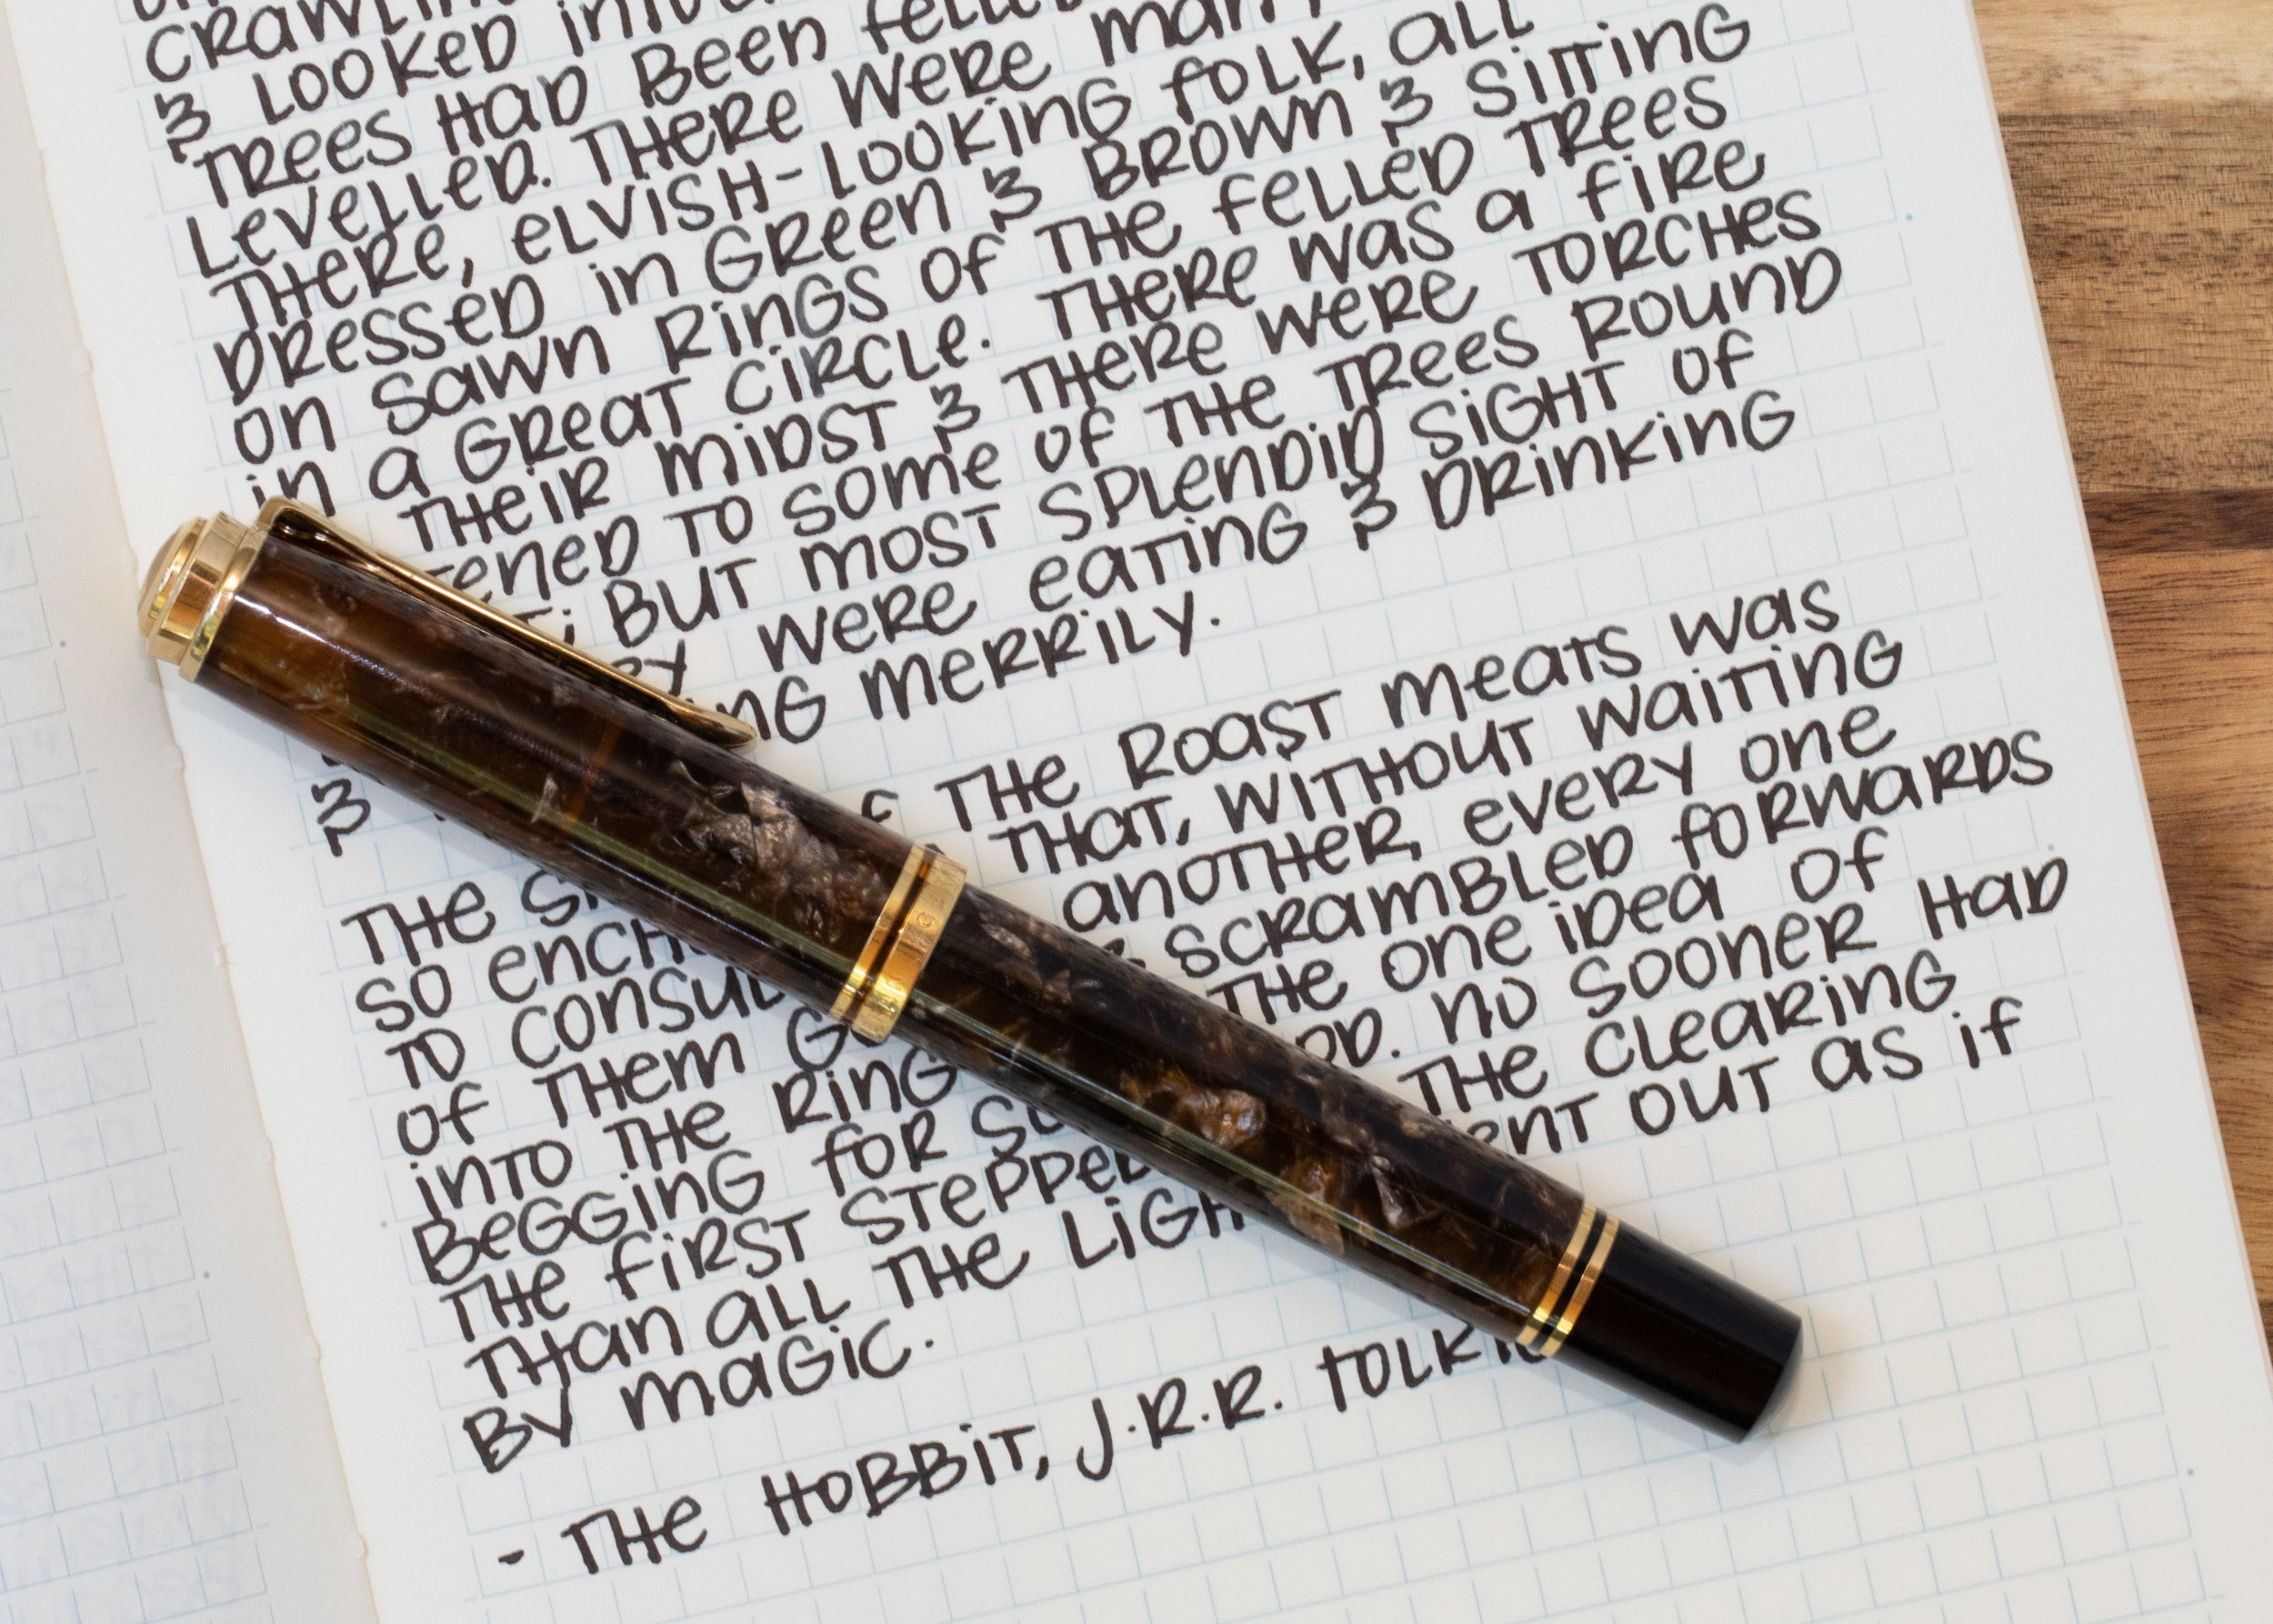 CRAWLIN
& LOOKED
TREES HAD BEEN FELLED
LEVELLED. THERE WERE MAN
THERE, ELVISH-LOOKING FOLK, ALL
DRESSED IN GREEN & BROWN & SITTING
ON SAWN RINGS OF THE FELLED TREES
IN A GREAT CIRCLE. THERE WAS A FIRE
THEIR MIDST & THERE WERE TORCHES
TENED TO SOME OF THE TREES ROUND
; BUT MOST SPLENDID SIGHT OF
EY WERE EATING & DRINKING
ING MERRILY.
&
THE ROAST MEATS WAS
THE
THAT, WITHOUT WAITING
SO ENCH
ANOTHER, EVERY ONE
TO CONSUL
& SCRAMBLED FORWARDS
OF THEM G
THE ONE IDEA OF
INTO THE RING
OD. NO SOONER HAD
BEGGING FOR SO
THE CLEARING
THE FIRST STEPPED
ENT OUT AS IF
THAN ALL THE LIGH
BY MAGIC.
- THE HOBBIT, J.R.R. TOLKI